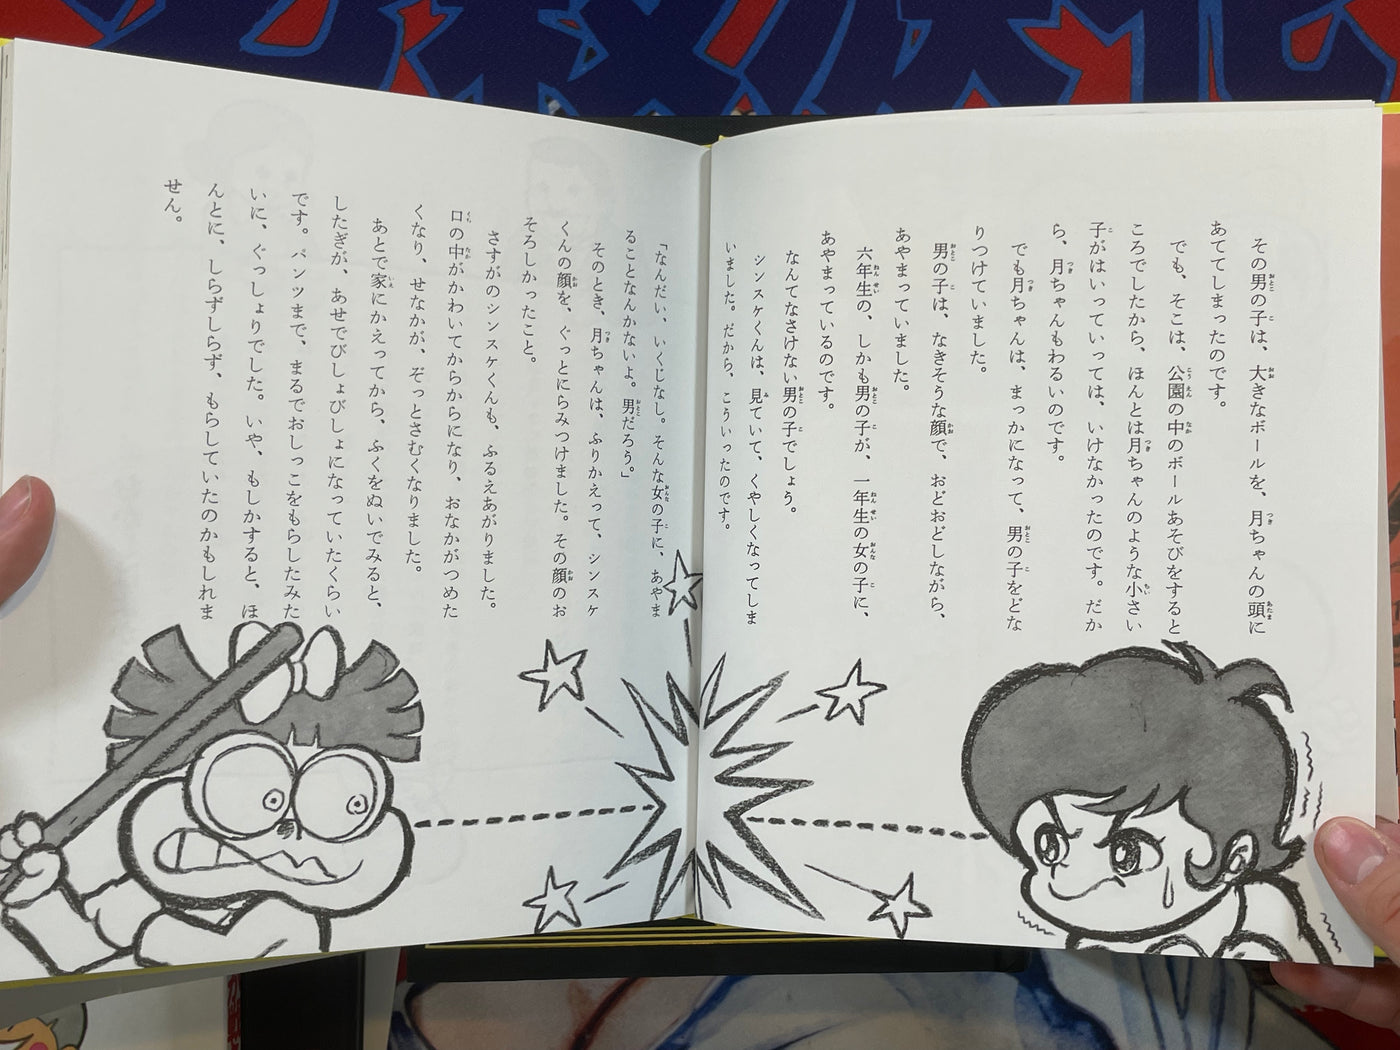 その男の子は、大きなボールを、月ちゃんの頭に
あててしまったのです。
でも、そこは、公園の中のボールあそびをすると
ころでしたから、ほんとは月ちゃんのような小さい
子がはいっていっては、いけなかったのです。だか
ら、月ちゃんもわるいのです。
でも月ちゃんは、まっかになって、男の子をどな
りつけていました。
男の子は、なきそうな顔で、おどおどしながら、
あやまっていました。
六年生の、しかも男の子が、一年生の女の子に、
あやまっているのです。
なんてなさけない男の子でしょう。
シンスケくんは、見ていて、くやしくなってしま
いました。だから、こういったのです。
「なんだい、いくじなし。そんな女の子に、あやま
ることなんかないよ。男だろう。」
そのとき、月ちゃんは、ふりかえって、シンスケ
くんの顔を、ぐっとにらみつけました。その顔のお
そろしかったこと。
さすがのシンスケくんも、ふるえあがりました。
口の中がかわいてからからになり、おなかがつめた
くなり、せなかが、ぞっとさむくなりました。
あとで家にかえってから、ふくをぬいでみると、
したぎが、あせでびしょびしょになっていたくらい
です。パンツまで、まるでおしっこをもらしたみた
いに、ぐっしょりでした。いや、もしかすると、ほ
んとに、しらずしらず、もらしていたのかもしれま
せん。